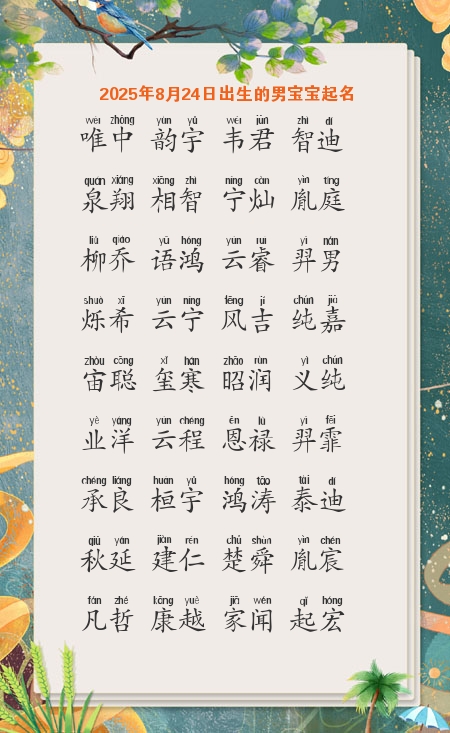 2025年8月24日出生的男宝宝起名
wéi zhōng yùn yǔ wéi jūn zhì dí
唯中 韵宇 韦君 智迪
quán xiáng xiāng zhì níng càn yìn tíng
泉翔 相智 宁灿 胤庭
liǔ qiáo yǔ hóng yún ruì yì nán
柳乔 语鸿 云睿 羿男
shuò xī yún níng fēng jí chún jiā
烁希 云宁 风吉 纯嘉
zhòu cōng xǐ hán zhāo rùn yì chún
宙聪 玺寒 昭润 义纯
yè yáng yún chéng ēn lù yì fēi
业洋 云程 恩禄 羿霏
chéng liáng huán yǔ hóng tāo tài dí
承良 桓宇 鸿涛 泰迪
qiū yán jiàn rén chǔ shùn yìn chén
秋延 建仁 楚舜 胤宸
fán zhé kāng yuè jiā wén qǐ hóng
凡哲 康越 家闻 起宏